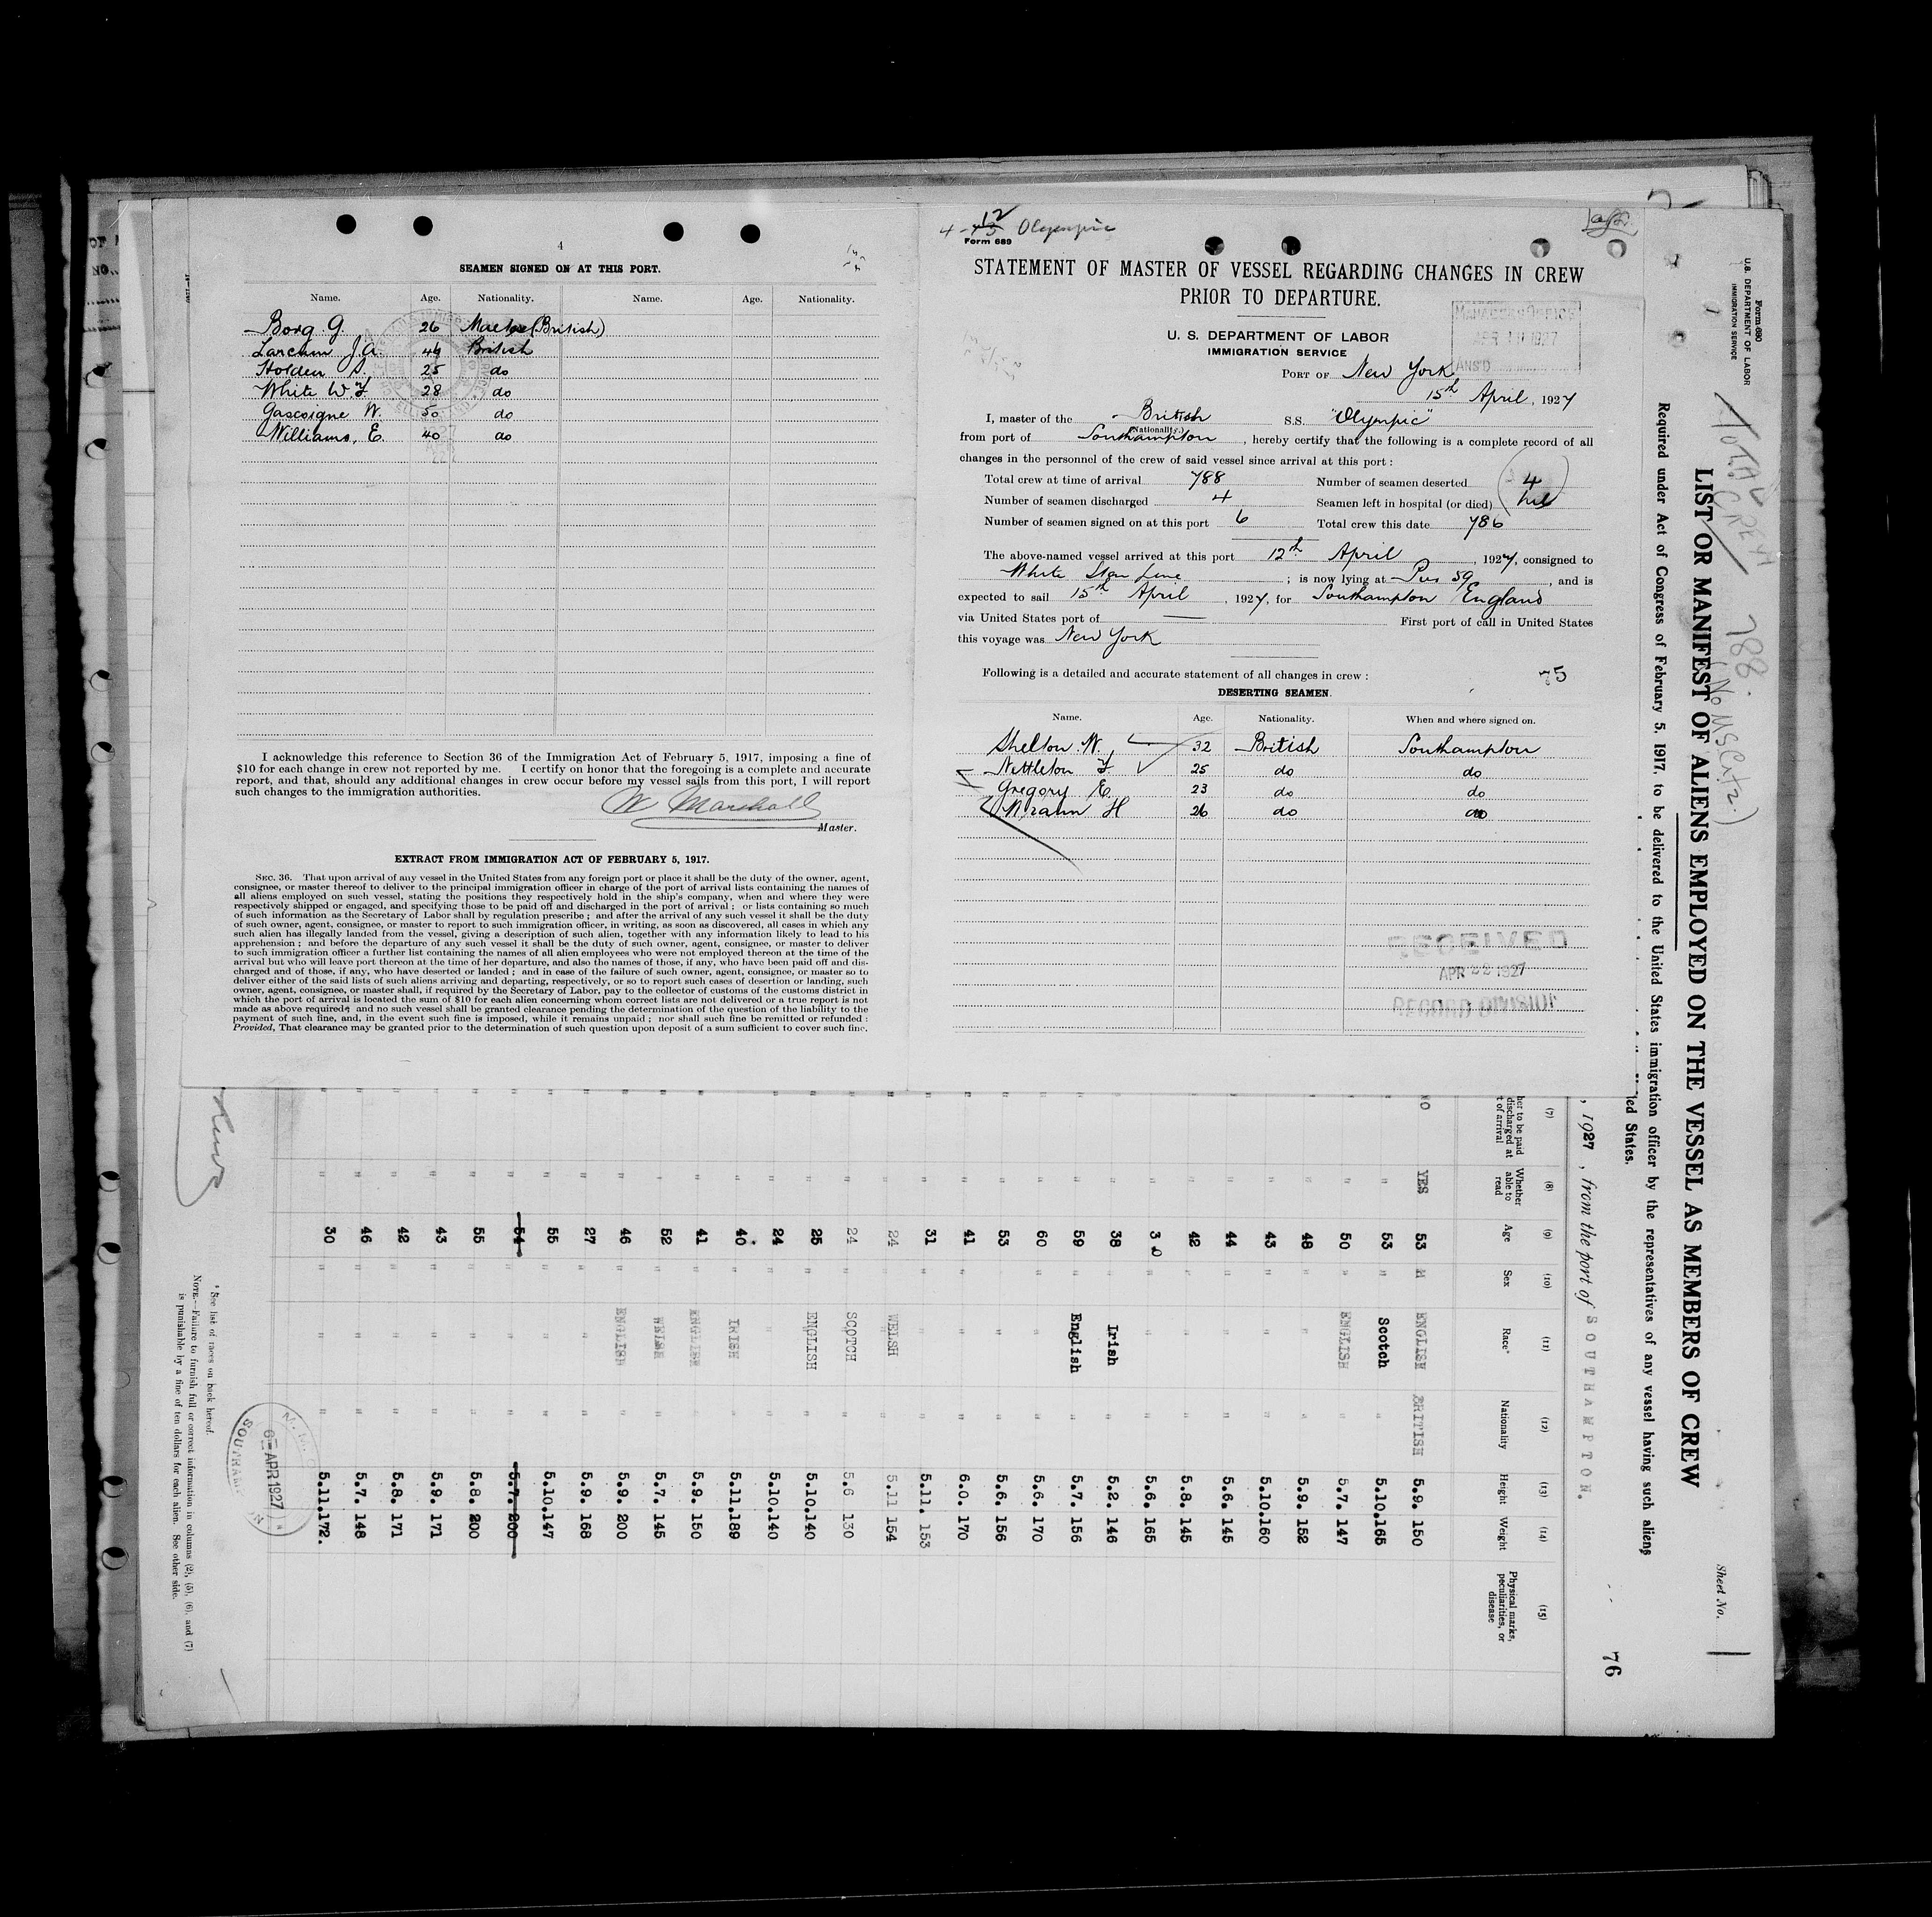 4
SEAMEN SIGNED ON AT THIS PORT.
Name. Age. Nationality. Name. Age. Nationality.
Borg G. 26 Maltese (British)
Larcham J.A. 44 British
Holden S. 25 do
White W.F. 28 do
Gascoigne W. 50 do
Williams, E. 40 do
I acknowledge this reference to Section 36 of the Immigration Act of February 5, 1917, imposing a fine of
$10 for each change in crew not reported by me. I certify on honor that the foregoing is a complete and accurate
report, and that, should any additional changes in crew occur before my vessel sails from this port, I will report
such changes to the immigration authorities.
W Marshall
Master.
EXTRACT FROM IMMIGRATION ACT OF FEBRUARY 5, 1917.
SEC. 36. That upon arrival of any vessel in the United States from any foreign port or place it shall be the duty of the owner, agent,
consignee, or master thereof to deliver to the principal immigration officer in charge of the port of arrival lists containing the names of
all aliens employed on such vessel, stating the positions they respectively hold in the ship's company, when and where they were
respectively shipped or engaged, and specifying those to be paid off and discharged in the port of arrival; or lists containing so much
of such information as the Secretary of Labor shall by regulation prescribe; and after the arrival of any such vessel it shall be the duty
of such owner, agent, consignee, or master to report to such immigration officer, in writing, as soon as discovered, all cases in which any
such alien has illegally landed from the vessel, giving a description of such alien, together with any information likely to lead to his
apprehension; and before the departure of any such vessel it shall be the duty of such owner, agent, consignee, or master to deliver
to such immigration officer a further list containing the names of all alien employees who were not employed thereon at the time of the
arrival but who will leave port thereon at the time of her departure, and also the names of those, if any, who have been paid off and dis-
charged and of those, if any, who have deserted or landed; and in case of the failure of such owner, agent, consignee, or master so to
deliver either of the said lists of such aliens arriving and departing, respectively, or so to report such cases of desertion or landing, such
owner, agent, consignee, or master shall, if required by the Secretary of Labor, pay to the collector of customs of the customs district in
which the port of arrival is located the sum of $10 for each alien concerning whom correct lists are not delivered or a true report is not
made as above required; and no such vessel shall be granted clearance pending the determination of the question of the liability to the
payment of such fine, and, in the event such fine is imposed, while it remains unpaid; nor shall such fine be remitted or refunded:
Provided, That clearance may be granted prior to the determination of such question upon deposit of a sum sufficient to cover such fine.
4-12 Olympic
Form 689
STATEMENT OF MASTER OF VESSEL REGARDING CHANGES IN CREW
PRIOR TO DEPARTURE.
U. S. DEPARTMENT OF LABOR
IMMIGRATION SERVICE
MANAGERS OFFICE
APR 1927
ANS'D
PORT OF New York
15th April, 1927
I, master of the British S.S. "Olympic"
(Nationality.)
from port of Southampton, hereby certify that the following is a complete record of all
changes in the personnel of the crew of said vessel since arrival at this port:
Total crew at time of arrival 788 Number of seamen deserted 4
Number of seamen discharged 4 Seamen left in hospital (or died) nil
Number of seamen signed on at this port 6 Total crew this date 786
The above-named vessel arrived at this port 12th April, 1927, consigned to
White Star Line; is now lying at Pier 59, and is
expected to sail 15th April, 1927, for Southampton England
via United States port of — First port of call in United States
this voyage was New York
Following is a detailed and accurate statement of all changes in crew: 75
DESERTING SEAMEN.
Name. Age. Nationality. When and where signed on.
Shelton W. 32 British Southampton
Nettleton F. 25 do do
Gregory E. 23 do do
26 do do
RECEIVED
APR 22 1927
RECORD DIVISION
Form 680
U.S. DEPARTMENT OF LABOR
IMMIGRATION SERVICE
TOTAL CREW 788.
(No US Citz.)
Sheet No. 1
LIST OR MANIFEST OF ALIENS EMPLOYED ON THE VESSEL AS MEMBERS OF CREW
Required under Act of Congress of February 5, 1917, to be delivered to the United States immigration officer by the representatives of any vessel having such aliens
ed States.
76
, 1927, from the port of SOUTHAMPTON.
(7) (8) (9) (10) (11) (12) (13) (14) (15)
her to be paid discharged at t of arrival Whether able to read Age Sex Race* Nationality Height Weight Physical marks, peculiarities, or disease
NO YES 53 M ENGLISH BRITISH 5.9. 150
" " 53 " Scotch " 5.10.165
" " 50 " ENGLISH " 5.7. 147
" " 48 " " " 5.9. 152
" " 43 " " " 5.10.160
" " 44 " " " 5.6. 145
" " 42 " " " 5.8. 145
" " 30 " " " 5.6. 165
" " 38 " Irish " 5.2. 146
" " 59 " English " 5.7. 156
" " 60 " " " 5.6. 170
" " 53 " " " 5.6. 156
" " 41 " " " 6.0. 170
" " 31 " " " 5.11. 153
" " 24 " WELSH " 5.11 154
" " 24 " SCOTCH " 5.6 130
" " 25 " ENGLISH " 5.10.140
" " 24 " " " 5.10.140
" " 40. " IRISH " 5.11.189
" " 41 " ENGLISH " 5.9. 150
" " 52 " WELSH " 5.7. 145
" " 46 " ENGLISH " 5.9. 200
" " 27 " " " 5.9. 168
" " 55 " " " 5.10.147
" " 54 " " " 5.7. 200
" " 55 " " " 5.8. 200
" " 43 " " " 5.9. 171
" " 42 " " " 5.8. 171
" " 46 " " " 5.7. 148
" " 30 " " " 5.11.172.
* See list of races on back hereof.
NOTE.—Failure to furnish full or correct information in columns (2), (5), (6), and (7)
is punishable by a fine of ten dollars for each alien. See other side.
6 APR 1927